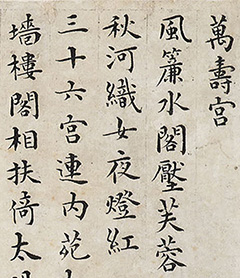 萬壽宫
風簾水閣壓芙蓉
秋河織女夜燈紅
三十六宫連内苑
墻樓閣相扶倚太